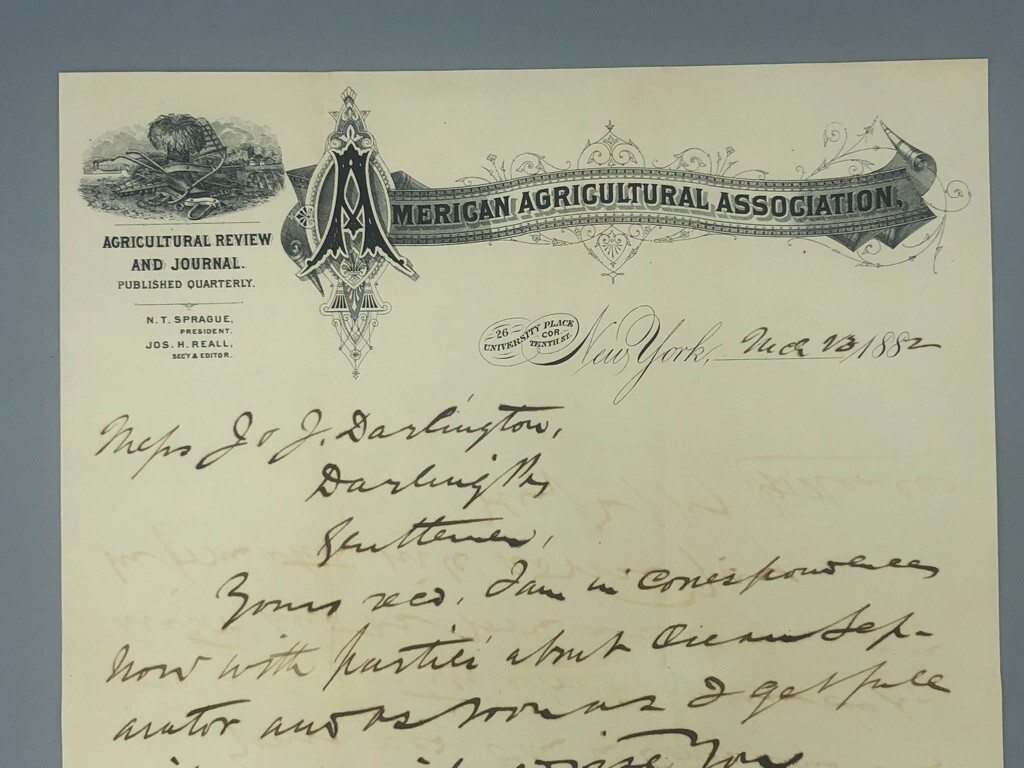 AMERICAN AGRICULTURAL ASSOCIATION,
AGRICULTURAL REVIEW
AND JOURNAL.
PUBLISHED QUARTERLY.
N. T. SPRAGUE,
PRESIDENT.
JOS. H. REALL,
SEC'Y & EDITOR.
26 UNIVERSITY PLACE COR. TENTH ST.
New York, Mch 13 1882
Mess J & J. Darlington,
Darling Pa
Gentlemen,
Yours recd, I am in correspondence
now with parties about Cream Sep-
arator and as soon as I get full
advise you